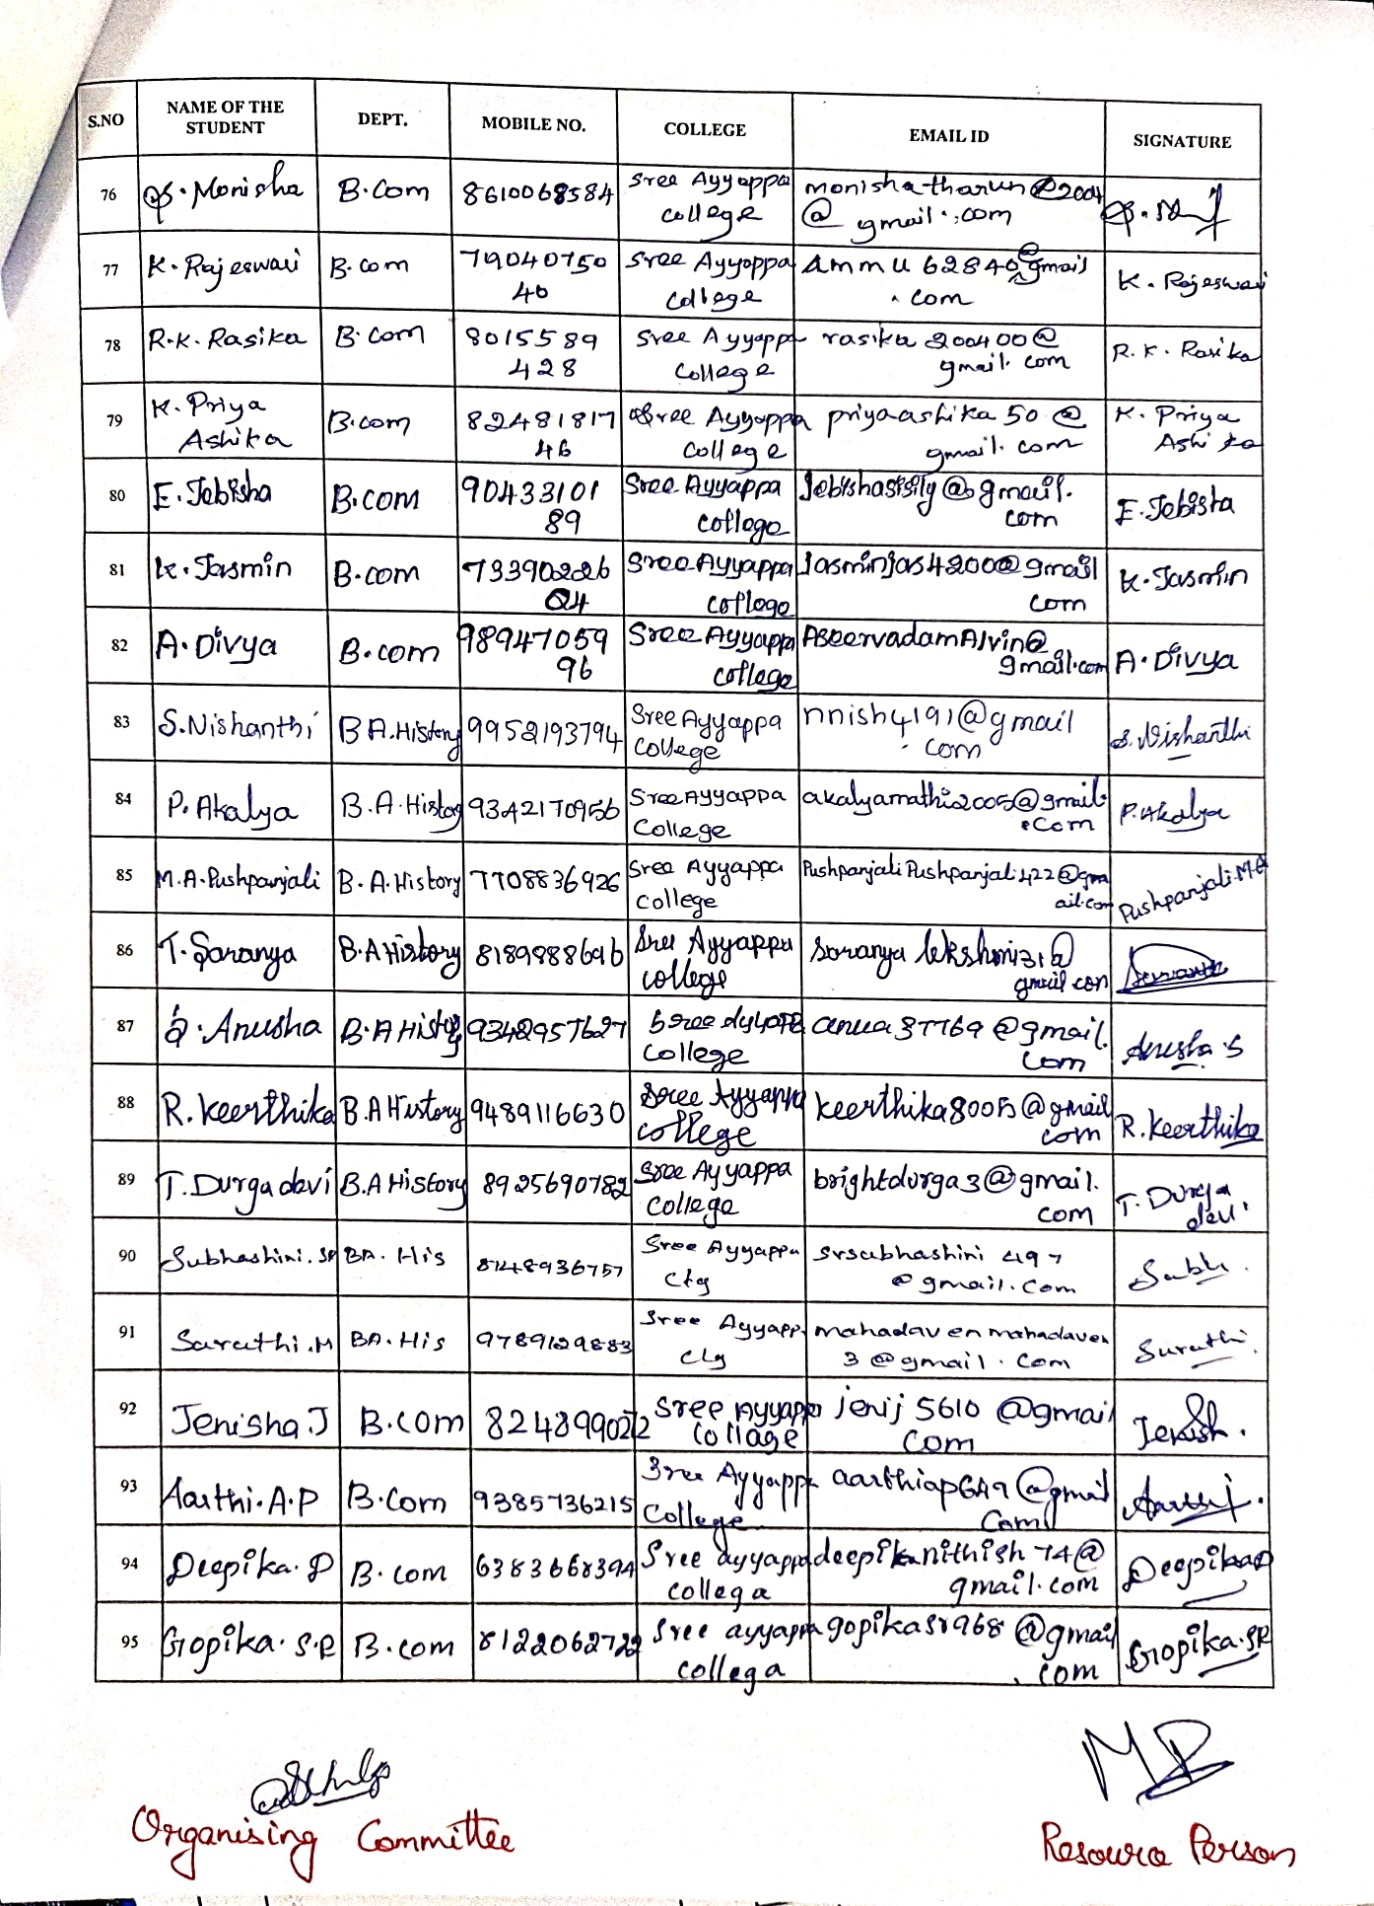 S.NO NAME OF THE STUDENT DEPT. MOBILE NO. COLLEGE EMAIL ID SIGNATURE
76 S. Monisha B.Com 8610068584 Sree Ayyappa college monisha-tharun2004 @ gmail.,com
77 K. Rajeswari B.com 79040750 40 Sree Ayyappa college ammu62840@gmail .com K. Rajeswari
78 R.K. Rasika B.com 8015589 428 Sree Ayyappa college rasika200400@ gmail.com R.K. Rasika
79 K. Priya Ashika B.com 82481817 46 Sree Ayyappa college priyaashika50@ gmail.com K. Priya Ashika
80 E. Jebisha B.com 90433101 89 Sree Ayyappa college Jebishasisily@gmail. com E. Jebisha
81 K. Jasmin B.com 73390226 04 Sree Ayyappa college Jasminjas4200@gmail com K. Jasmin
82 A. Divya B.com 98947059 96 Sree Ayyappa college AseervadamAlvin@ gmail.com A. Divya
83 S.Nishanthi BA.History 9952193794 Sree Ayyappa College nnish4191@gmail .com S. Nishanthi
84 P. Akalya B.A.History 9342170956 Sree Ayyappa College akalyamathi2005@gmail. .com P. Akalya
85 M.A.Pushpanjali B.A.History 7708836926 Sree Ayyappa College PushpanjaliPushpanjali422@gm ail.com Pushpanjali.M.A
86 T. Saranya B.A History 8189888696 Sree Ayyappa college Saranya lekshmi31@ gmail com
87 S. Anusha B.A History 9342957627 Sree Ayyappa College anua37769@gmail. com Anusha.S
88 R. Keerthika B.A History 9489116630 Sree Ayyappa College keerthika8005@gmail com R. Keerthika
89 T. Durga devi B.A History 8925690782 Sree Ayyappa College brightdurga3@gmail. com T. Durga devi
90 Subhashini. SR BA. His 8148936757 Sree Ayyappa Clg srsubhashini 497 @gmail.com Subh.
91 Saruthi.M BA.His 9789129883 Sree Ayyappa Clg mahadavenmahadaven 3@gmail.com Suruthi.
92 Jenisha.J B.com 8248990272 Sree Ayyappa College jenij5610@gmail com Jenish.
93 Aarthi.A.P B.Com 9385736215 Sree Ayyappa College aarthiap649@gmail Com
94 Deepika.D B.com 6383668394 Sree ayyappa college deepikanithish74@ gmail.com Deepika D
95 Gopika. S.R B.com 8122062722 Sree ayyappa college gopikasr968@gmail .com Gopika.SR
Organising Committee Resource Person